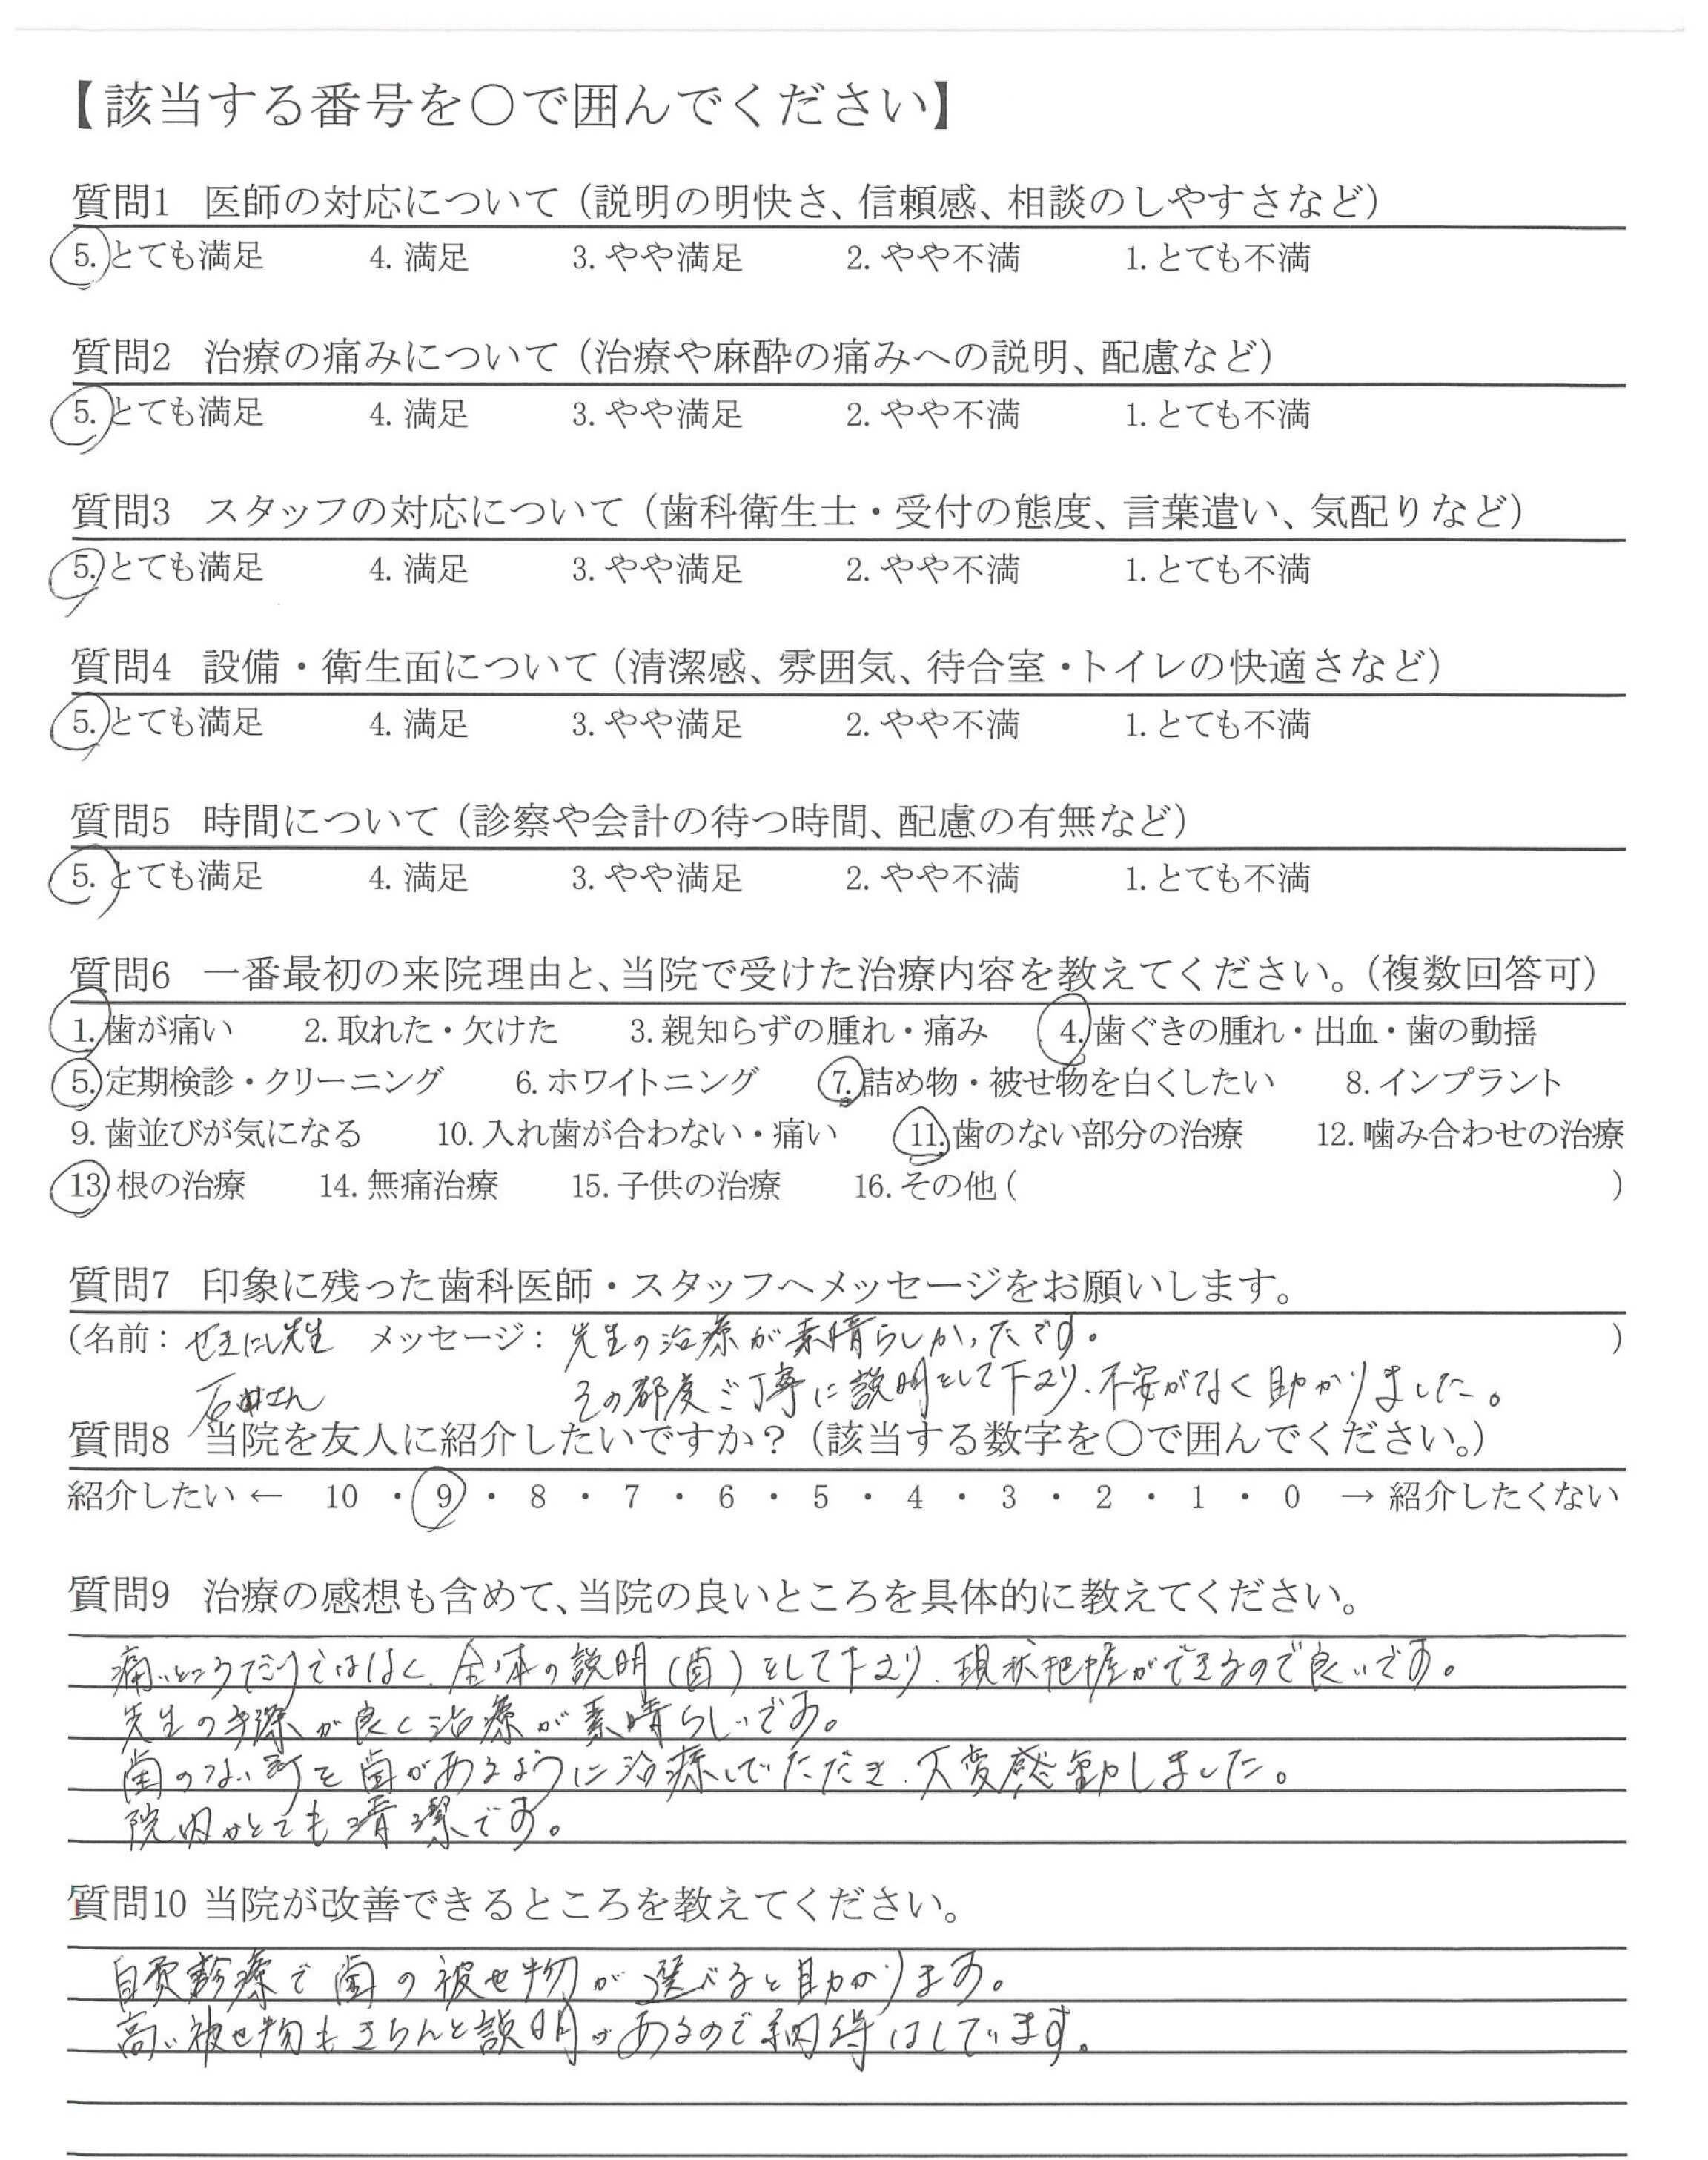 【該当する番号を〇で囲んでください】
質問1 医師の対応について（説明の明快さ、信頼感、相談のしやすさなど）
5. とても満足 4. 満足 3. やや満足 2. やや不満 1. とても不満
質問2 治療の痛みについて（治療や麻酔の痛みへの説明、配慮など）
5. とても満足 4. 満足 3. やや満足 2. やや不満 1. とても不満
質問3 スタッフの対応について（歯科衛生士・受付の態度、言葉遣い、気配りなど）
5. とても満足 4. 満足 3. やや満足 2. やや不満 1. とても不満
質問4 設備・衛生面について（清潔感、雰囲気、待合室・トイレの快適さなど）
5. とても満足 4. 満足 3. やや満足 2. やや不満 1. とても不満
質問5 時間について（診察や会計の待つ時間、配慮の有無など）
5. とても満足 4. 満足 3. やや満足 2. やや不満 1. とても不満
質問6 一番最初の来院理由と、当院で受けた治療内容を教えてください。（複数回答可）
1. 歯が痛い 2. 取れた・欠けた 3. 親知らずの腫れ・痛み 4. 歯ぐきの腫れ・出血・歯の動揺
5. 定期検診・クリーニング 6. ホワイトニング 7. 詰め物・被せ物を白くしたい 8. インプラント
9. 歯並びが気になる 10. 入れ歯が合わない・痛い 11. 歯のない部分の治療 12. 噛み合わせの治療
13. 根の治療 14. 無痛治療 15. 子供の治療 16. その他（ ）
質問7 印象に残った歯科医師・スタッフへメッセージをお願いします。
（名前：せきにし先生 メッセージ：先生の治療が素晴らしかったです。）
石井さん その都度ご丁寧に説明をして下さり、不安がなく助かりました。
質問8 当院を友人に紹介したいですか？（該当する数字を〇で囲んでください。）
紹介したい ← 10 ・ 9 ・ 8 ・ 7 ・ 6 ・ 5 ・ 4 ・ 3 ・ 2 ・ 1 ・ 0 → 紹介したくない
質問9 治療の感想も含めて、当院の良いところを具体的に教えてください。
痛いところだけではなく、全体の説明（歯）をして下さり、現状把握ができるので良いです。
先生の手際が良く治療が素晴らしいです。
歯のない所を歯があるように治療していただき、大変感動しました。
院内がとても清潔です。
質問10 当院が改善できるところを教えてください。
自費診療で歯の被せ物が選べると助かります。
高い被せ物もきちんと説明があるので納得はしています。